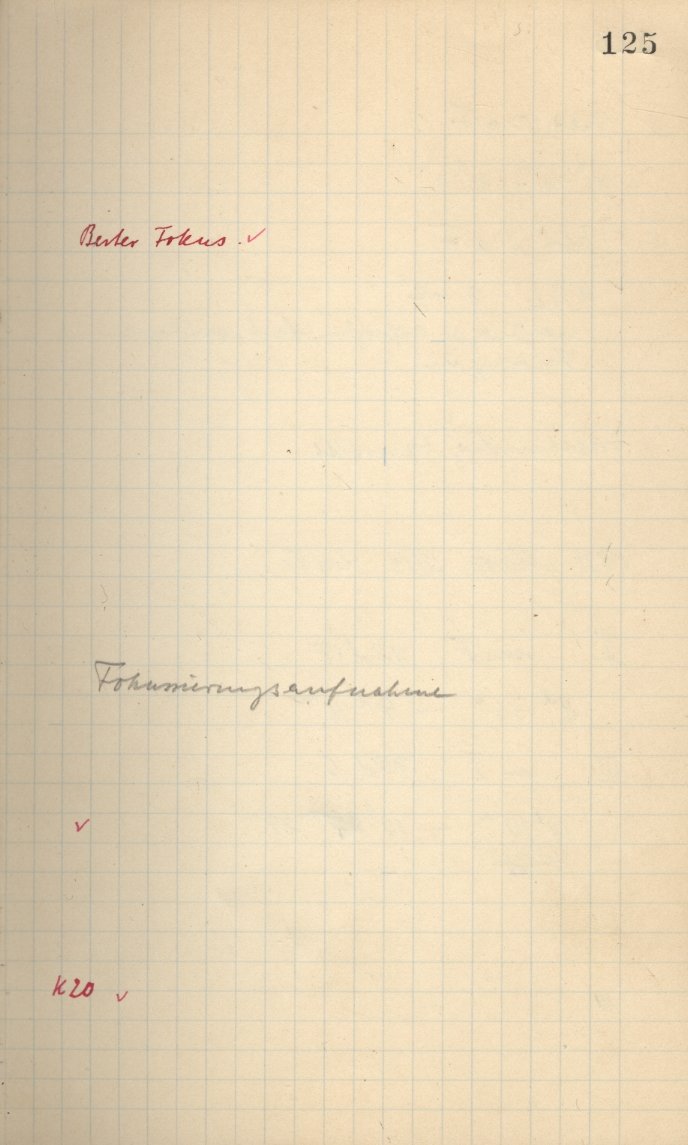 125
Bester Fokus. ✓
Fokussierungsaufnahme
✓
K20 ✓